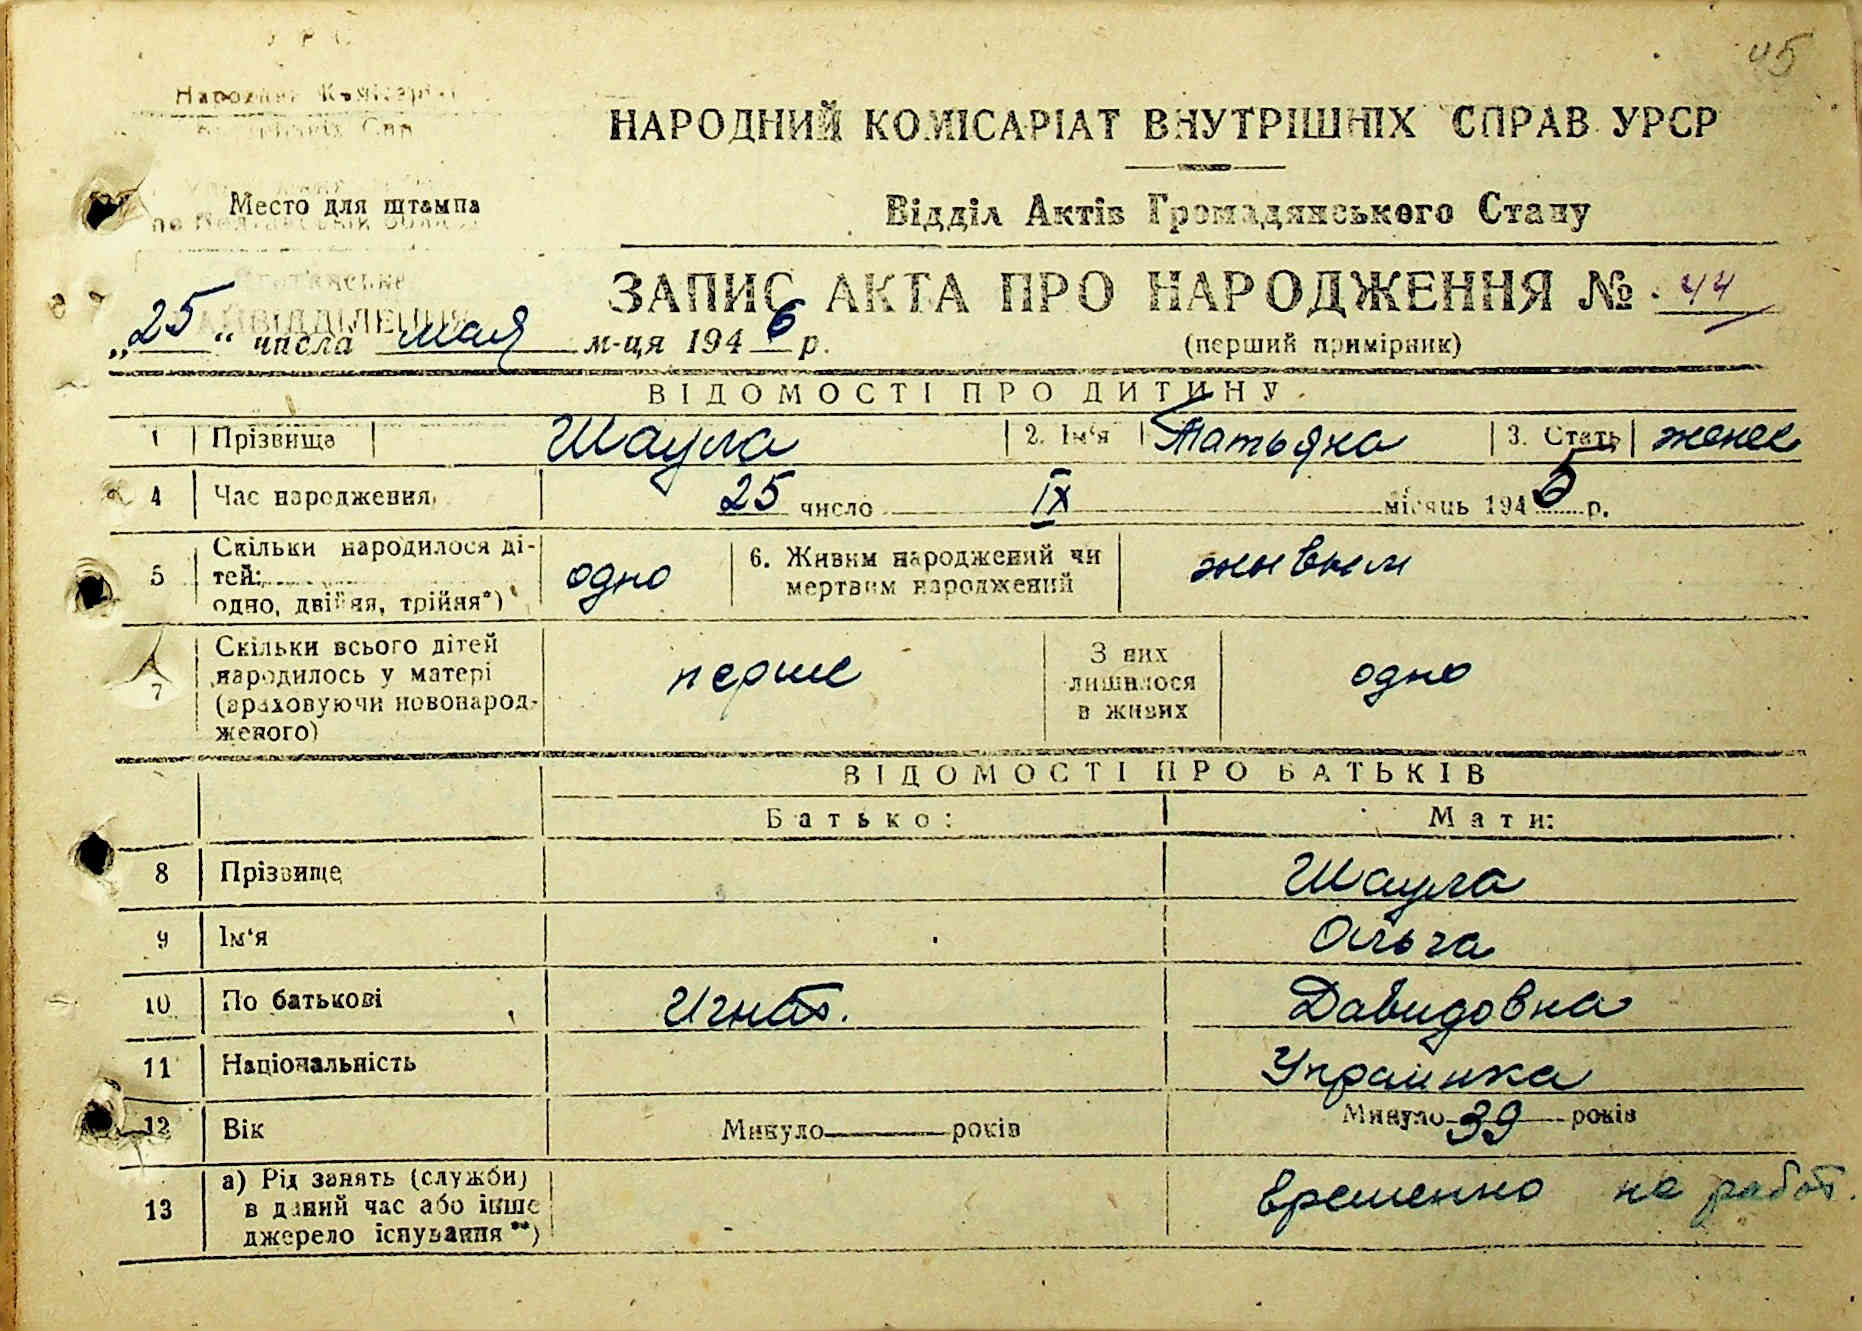 45
НАРОДНИЙ КОМІСАРІАТ ВНУТРІШНІХ СПРАВ УРСР
Место для штампа
Відділ Актів Громадянського Стану
ЗАПИС АКТА ПРО НАРОДЖЕННЯ № 44
„25“ числа мая м-ця 1946 р.
(перший примірник)
ВІДОМОСТІ ПРО ДИТИНУ
1 Прізвище Шаула 2. Ім‘я Татьяна 3. Стать женск
4 Час народження 25 число IX місяць 1945 р.
5 Скільки народилося ді-
тей:
одно, двійня, трійня*)
одно
6. Живим народжений чи
мертвим народжений
живым
7 Скільки всього дітей
народилось у матері
(враховуючи новонарод-
женого)
перше
З них
лишилося
в живих
одно
ВІДОМОСТІ ПРО БАТЬКІВ
Батько: Мати:
8 Прізвище Шаула
9 Ім‘я Ольга
10 По батькові Игнат. Давидовна
11 Національність Украинка
12 Вік Минуло років Минуло 39 років
13 а) Рід занять (служби)
в даний час або інше
джерело існування**)
временно не работ.